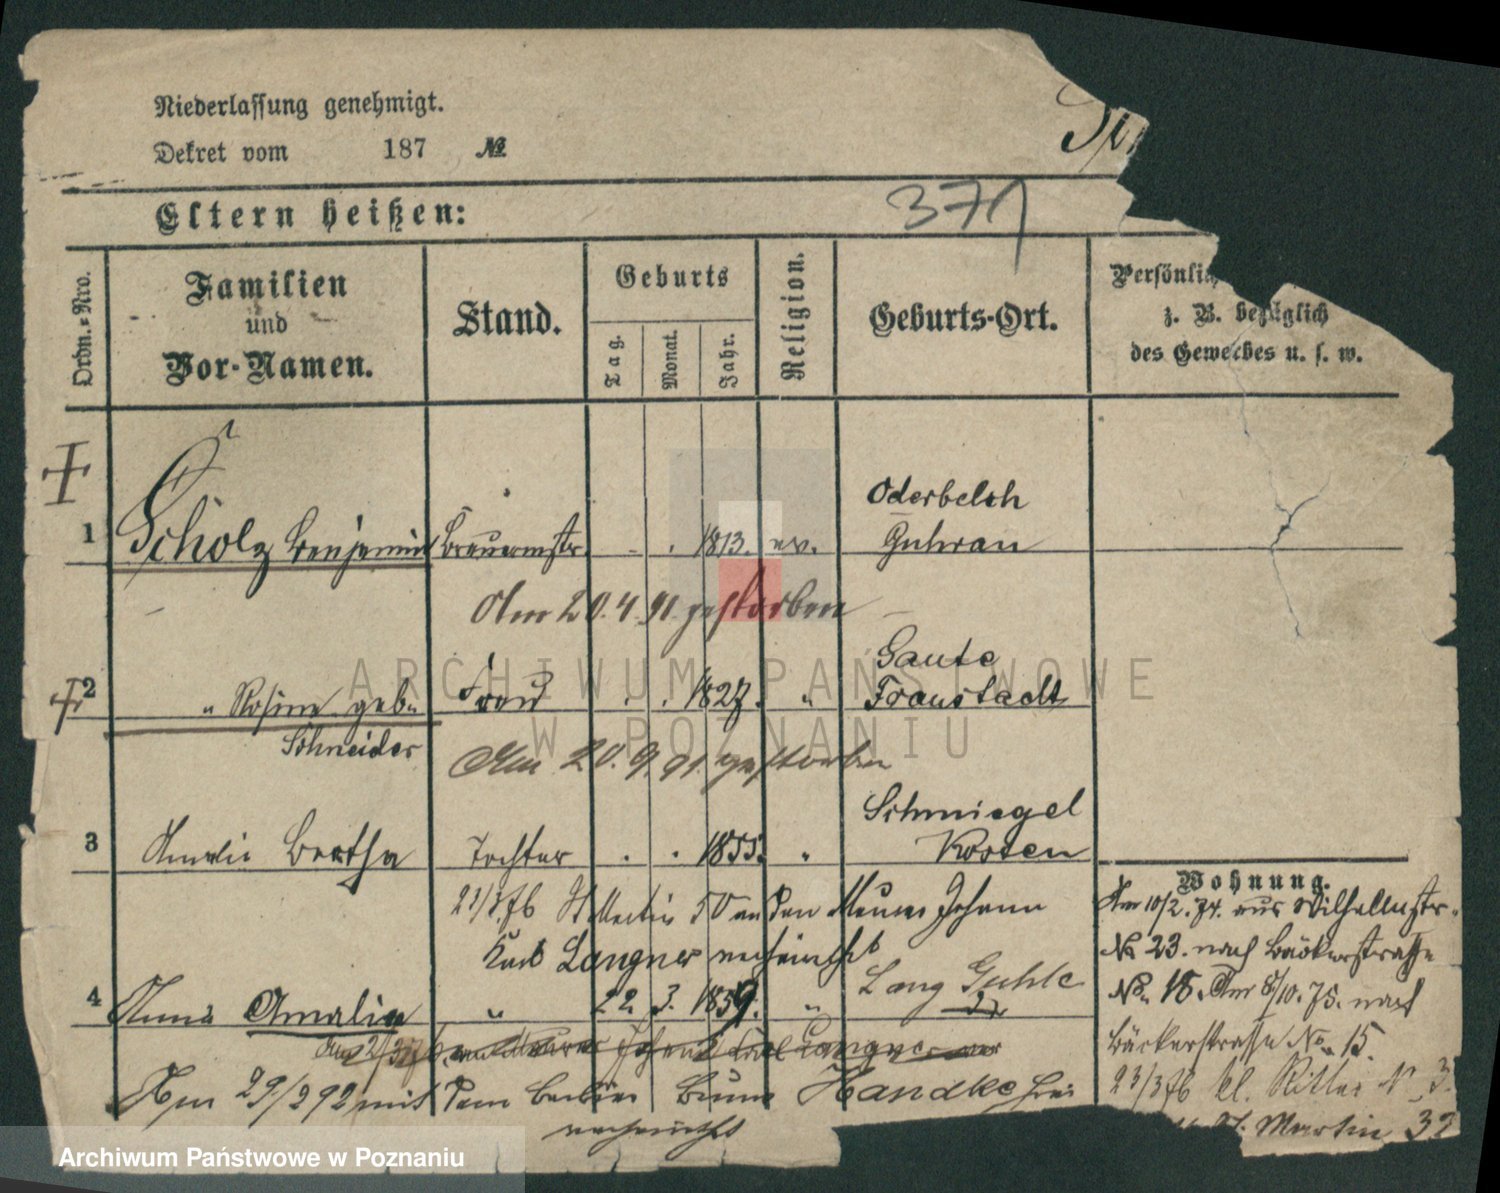 Niederlassung genehmigt.
Dekret vom 187 №
371
Eltern heißen:
Ordn.-Nro.
Familien
und
Vor-Namen.
Stand.
Geburts
Tag.
Monat.
Jahr.
Religion.
Geburts-Ort.
Persönlic
z. B. bezüglich
des Gewerbes u. s. w.
Oderbelsch
1 Scholz Benjamin Brauermstr. 1813. ev. Guhrau
Am 20.4.91 gestorben
Gaute
2 " Rosine geb. Frau 1827. " Fraustadt
Schneider
Am 20.9.91 gestorben
Schmiegel
3 Amalie Bertha Tochter 1855. " Kosten
Wohnung.
Am 10/2.74. aus Wilhelmstr.
21/3.76 St Martin 50 an den Maurer Johann
№ 23. nach Bäckerstraße
Karl Langner verheirathet
Lang Guhle
№ 18. Am 8/10.75. nach
4 Anna Amalia " 22. 3. 1859. "
Bäckerstraße No. 15.
23/3 76 kl. Ritter N 3.
Am 29/2 92 mit dem Bruno Handke hier
verheirathet
St. Martin 32
ARCHIWUM PAŃSTWOWE
W POZNANIU
Archiwum Państwowe w Poznaniu